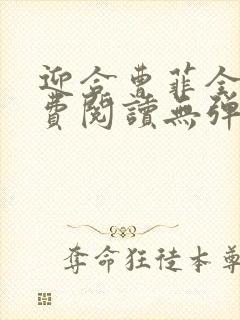 迎合曹菲全
費閱讀無彈
奪命狂徒本尊